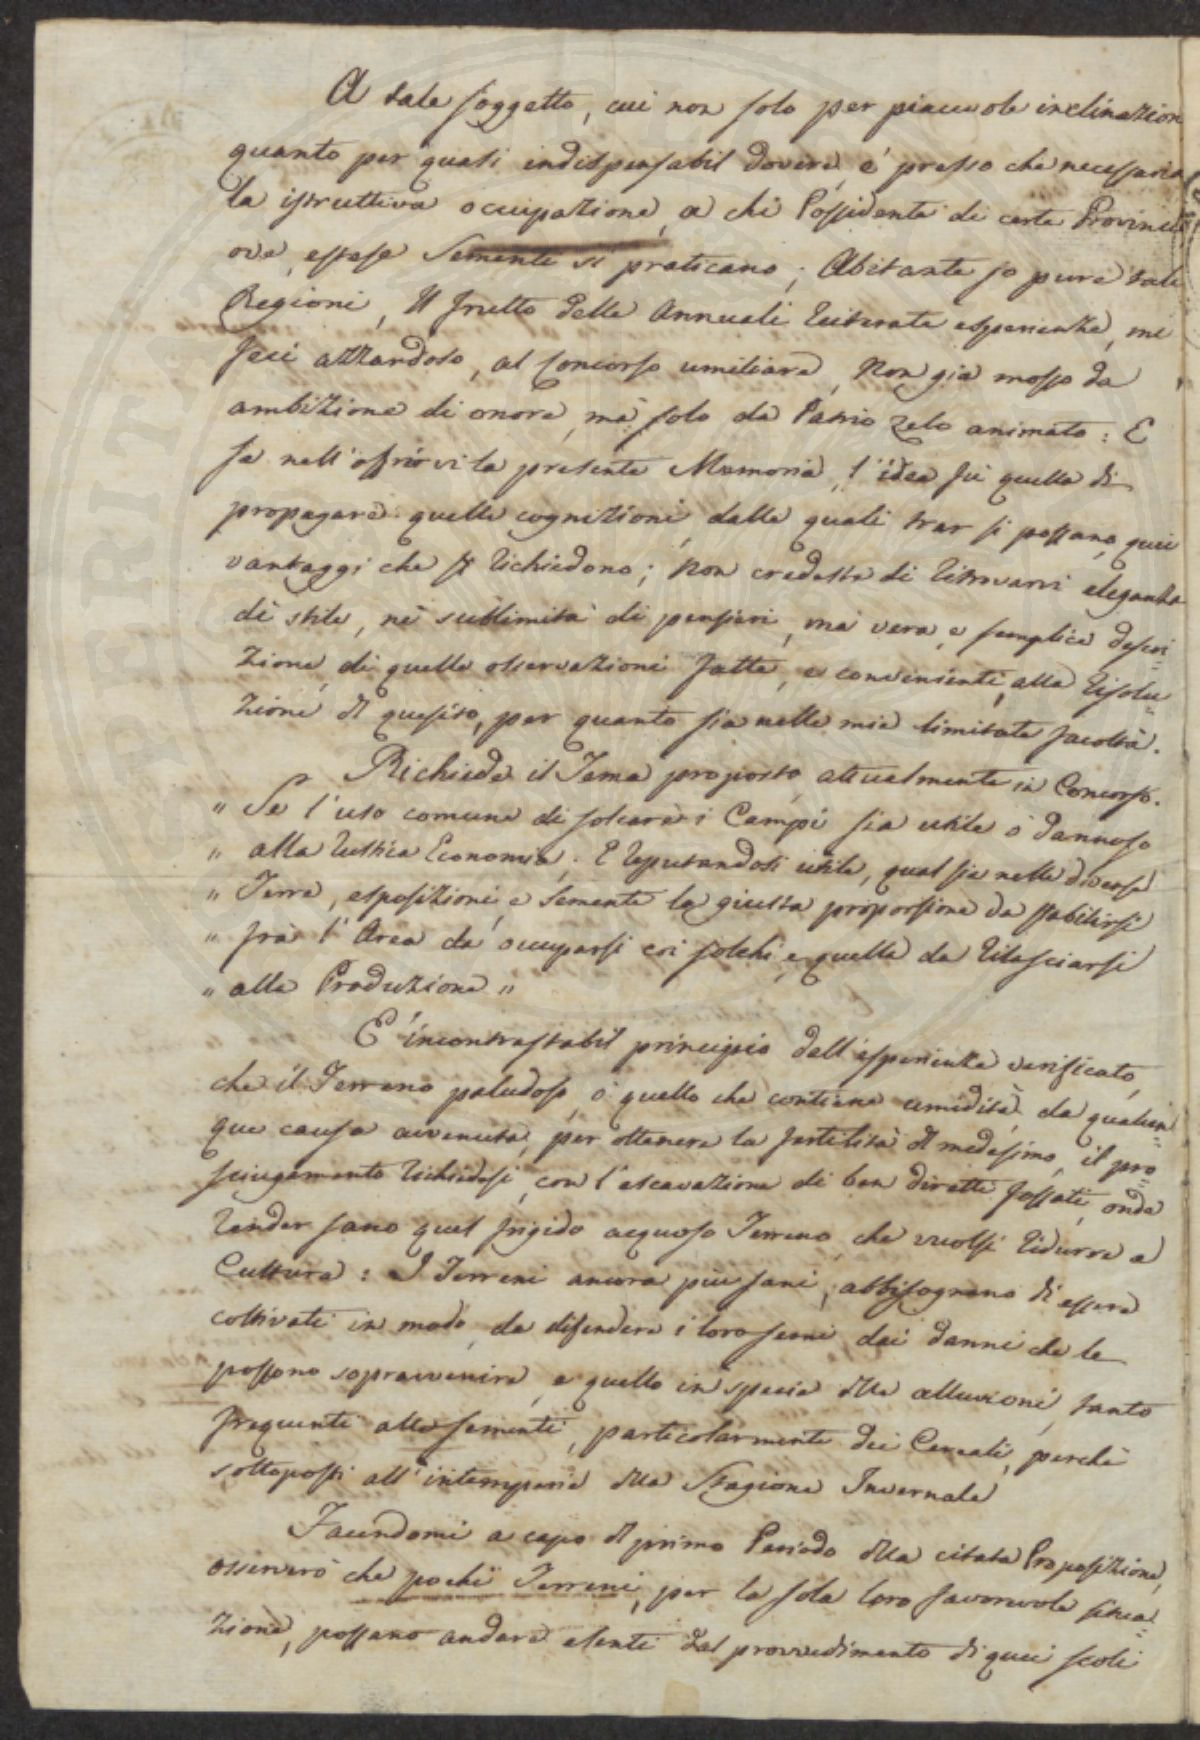 A tale soggetto, cui non solo per piacevole inclinazion
quanto per quasi indispensabil dovere, è presso che necessaria
la istruttiva occupazione, a chi Possidente di certe Provincie
ove estese Semente si praticano; Abitante jo pure tali
Regioni, Il frutto delle Annuali reiterate esperienze, mi
feci azzardoso, al Concorso umiliare, Non già mosso da
ambizione di onore, mà solo da Patrio zelo animato: E
se nell'offrirvi la presente Memoria, l'idea fù quella di
propagare quelle cognizioni, dalle quali trar si possano, quei
vantaggi che si richiedono; Non credeste di ritrovarvi eleganza
di stile, nè sublimità di pensieri, mà vera, e semplice descri=
zione, di quelle osservazioni fatte, e convenienti, alla risolu=
zione del quesito, per quanto sia nelle mie limitate facoltà.
Richiede il Tema proposto, attualmente in Concorso.
" Se l'uso comune di solcare i Campi sia utile ò dannoso
" alla rustica Economia. E reputandosi utile, qual sia nelle diverse
" Terre, esposizioni, e Semente la giusta proporzione da stabilirsi
" frà l'Area da occuparsi coi solchi, e quella da rilasciarsi
" alla Produzione "
E' incontrastabil principio dall'esperienza verificato,
che il Terreno paludoso, ò quello che contiene umidità, da qualun=
que causa avvenuta, per ottenere la fertilità del medesimo, il pro=
sciugamento richiedesi, con l'escavazione di ben diretti fossati, onde
render sano quel frigido acquoso Terreno, che vuolsi ridurre a
Cultura: I Terreni ancora più sani, abbisognano di essere
coltivati in modo, da difendere i loro semi dai danni che le
possono sopravvenire, e quello in specie delle alluvioni, tanto
frequenti alle sementi, particolarmente dei Cereali, perchè
sottoposti all'intemperie della Stagione Invernale
Facendomi a capo del primo Periodo della citata Proposizione,
osserverò che pochi Terreni, per la sola loro favorevole situa=
zione, possano andare esenti dal provvedimento di quei scoli